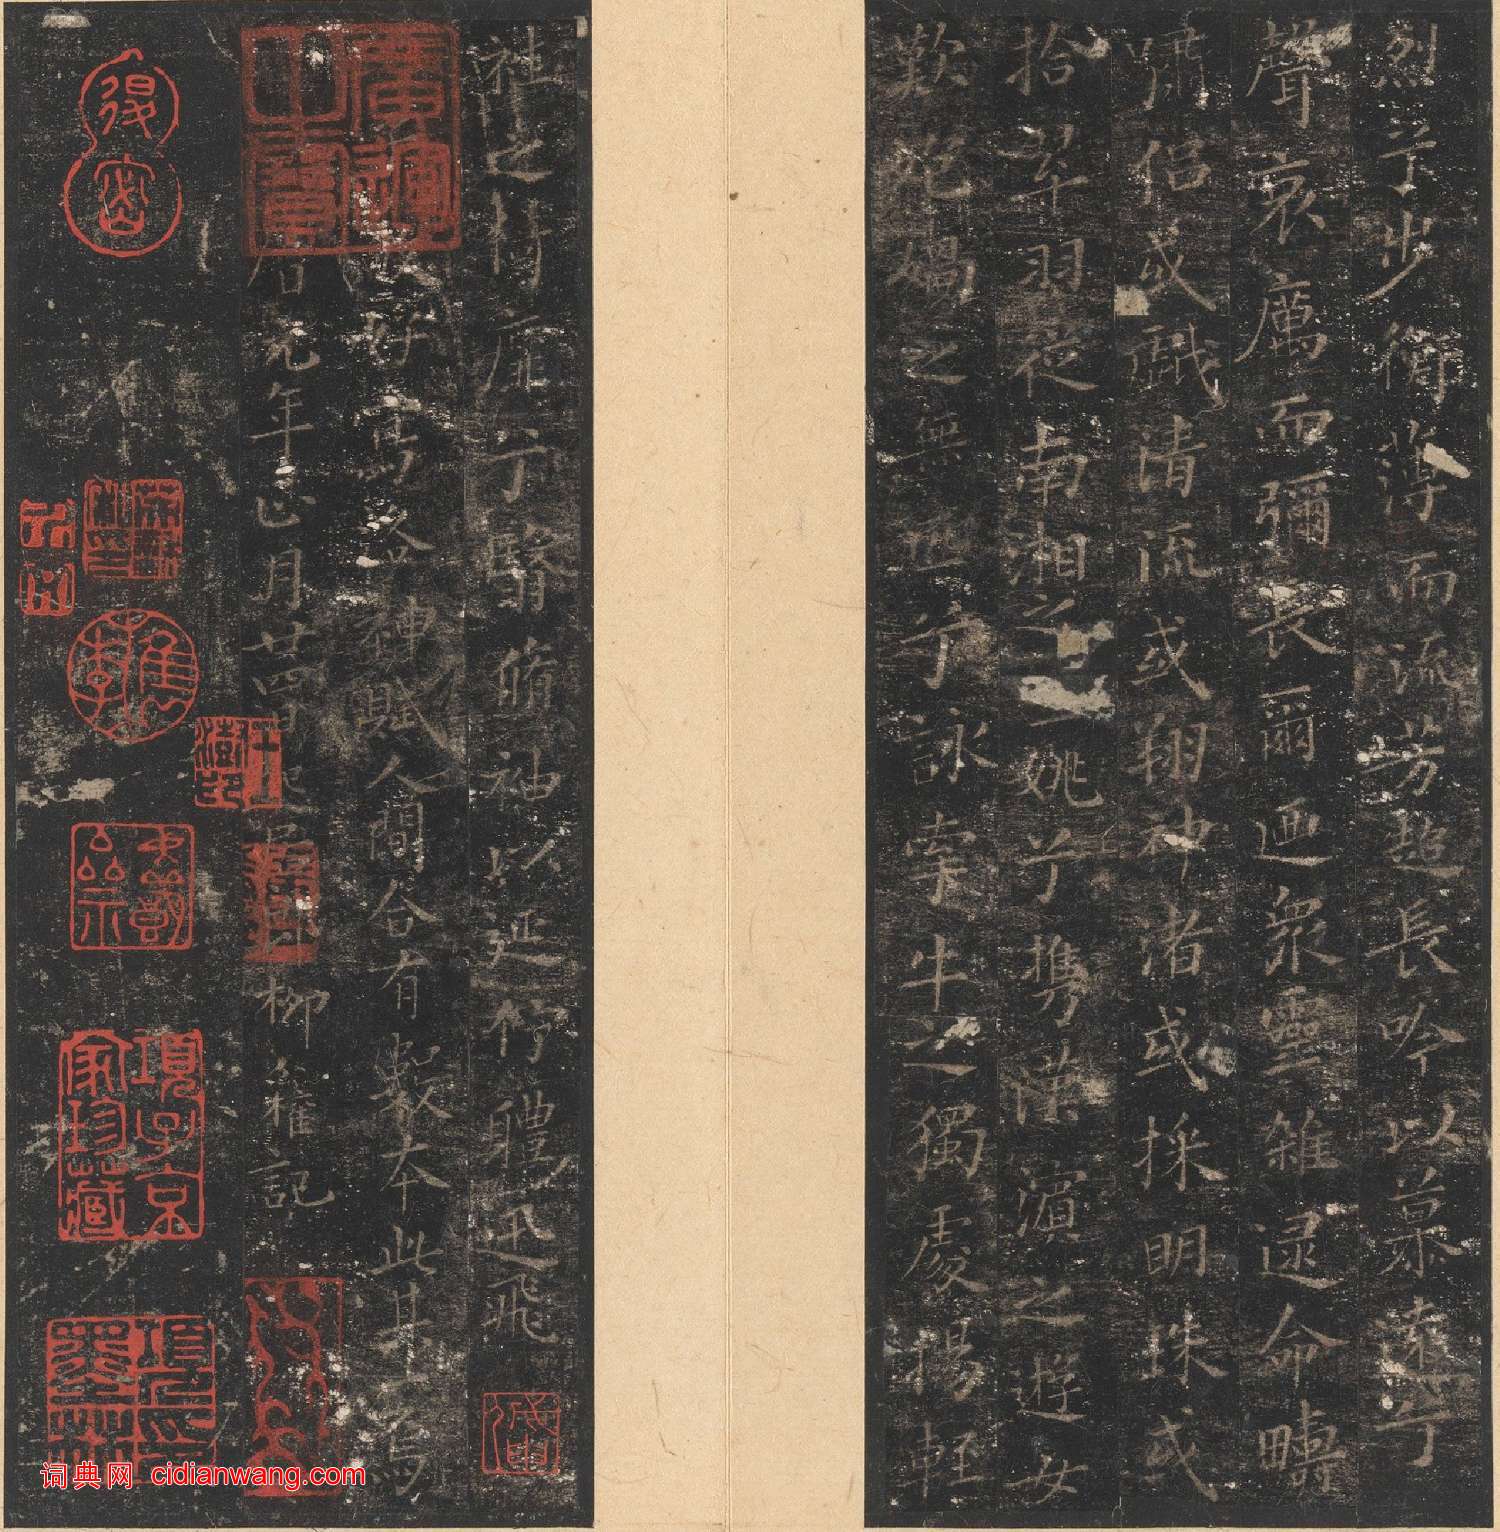 烈兮步衡薄而流芳超長吟以慕遠兮
聲哀厲而彌長爾迺眾靈雜逮命疇
嘯侶或戲清流或翔神渚或採明珠或
拾翠羽從南湘之二姚兮攜漢濱之遊女
歎匏媧之無匹兮詠牽牛之獨處揚輕
袿之猗靡兮翳脩袖以延佇體迅飛
好寫洛神賦人間合有數本此其焉
元年正月廿四日起居郎柳權記
項子京家珍藏
词典网 cidianwang.com